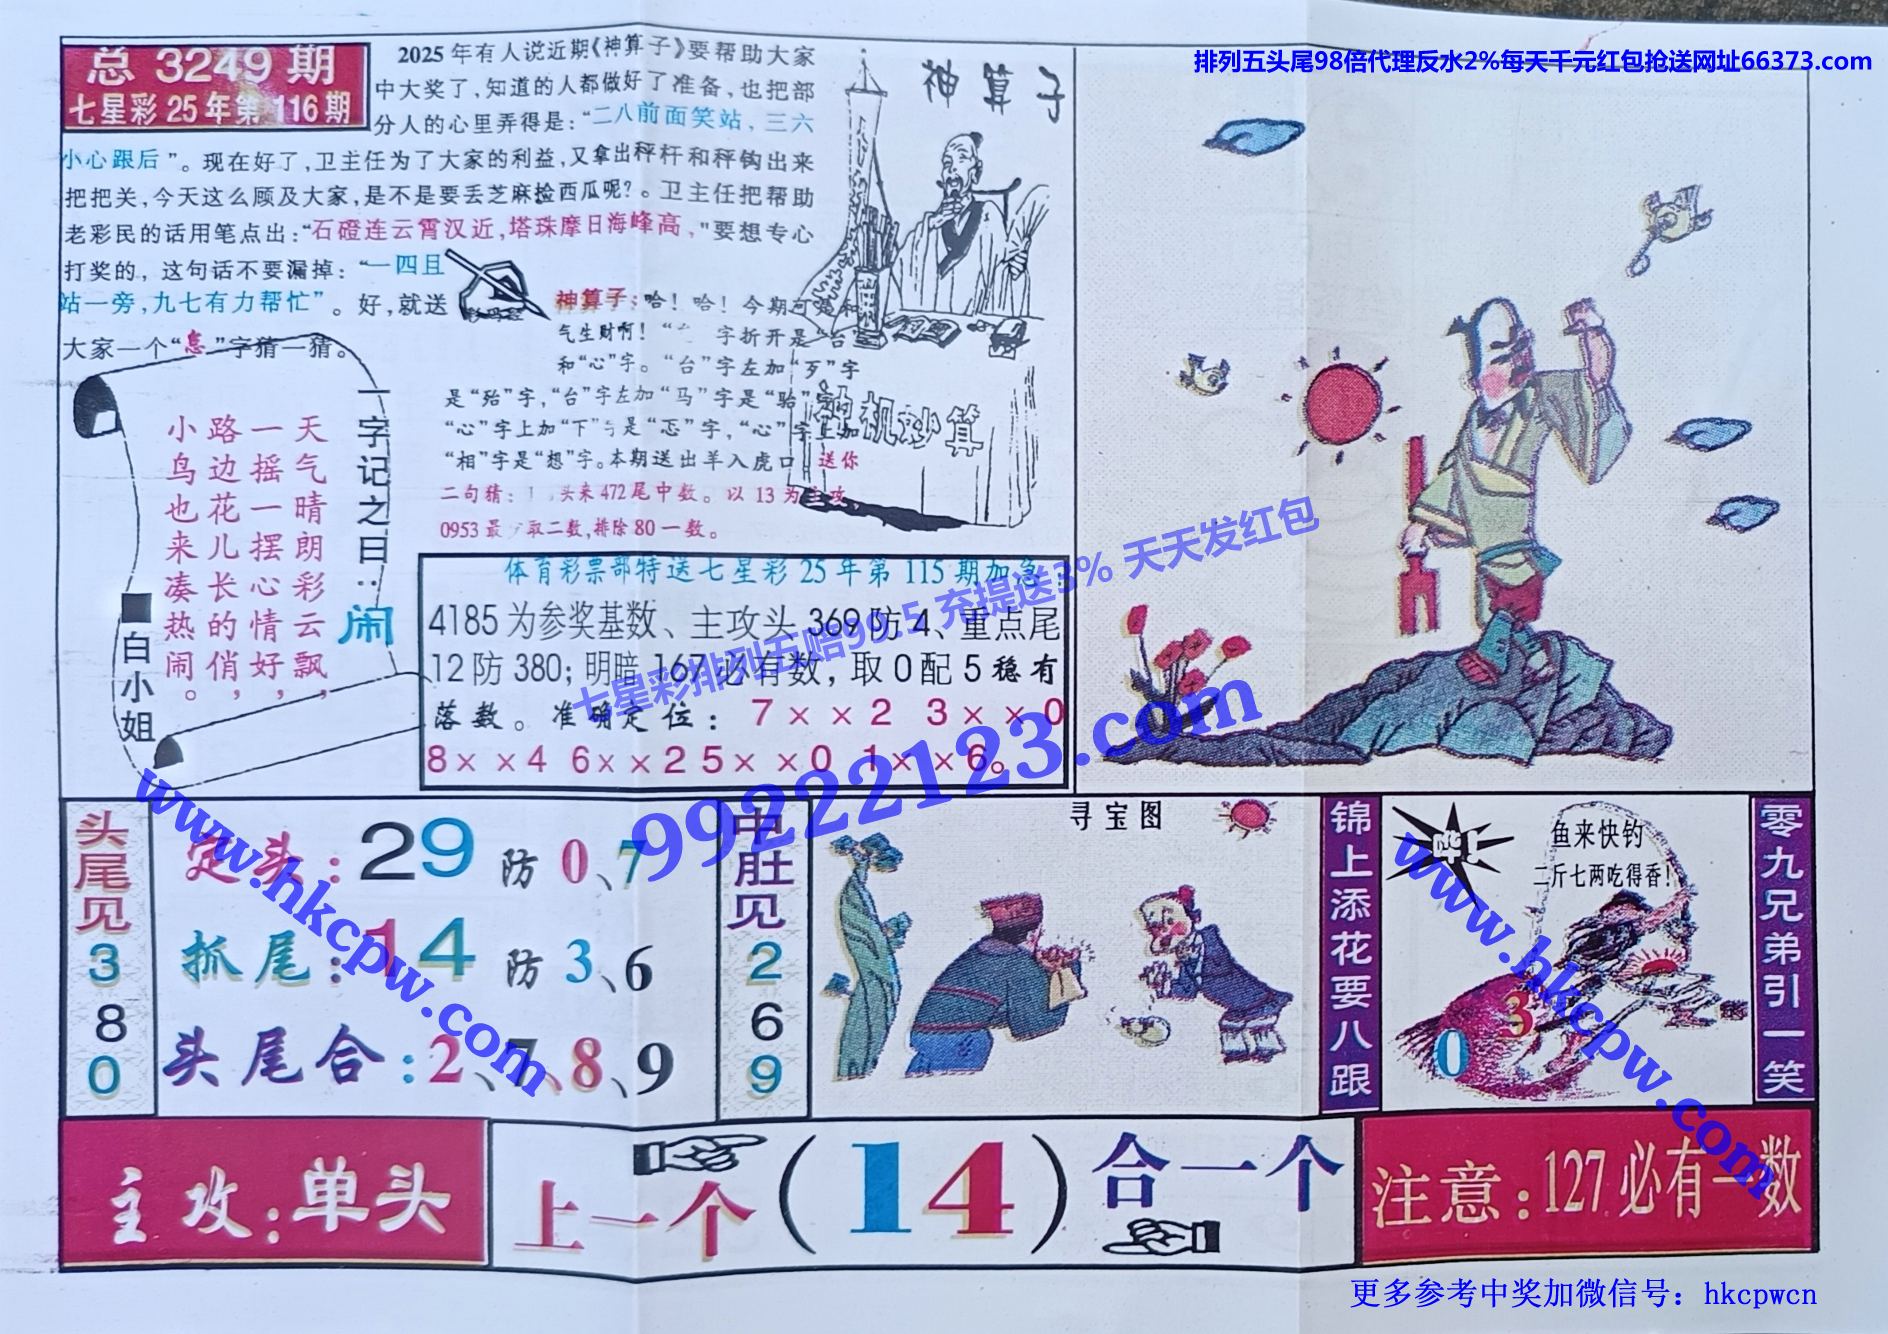 排列五头尾98倍代理反水2%每天千元红包抢送网址66373.com
总 3249 期
七星彩 25 年第 116 期
2025 年有人说近期《神算子》要帮助大家
中大奖了，知道的人都做好了准备，也把部
分人的心里弄得是：“二八前面笑站，三六
小心跟后”。现在好了，卫主任为了大家的利益，又拿出秤杆和秤钩出来
把把关，今天这么顾及大家，是不是要丢芝麻捡西瓜呢？。卫主任把帮助
老彩民的话用笔点出：“石磴连云霄汉近，塔珠摩日海峰高，”要想专心
打奖的，这句话不要漏掉：“一四且
站一旁，九七有力帮忙”。好，就送
大家一个“怠”字猜一猜。
神算子
神算子：哈！哈！今期可是和
气生财啊！“ 字折开是“台”
和“心”字。“台”字左加“歹”字
是“殆”字，“台”字左加“马”字是“骀”字
“心”字上加“下”字是“忑”字，“心”字上加
“相”字是“想”字。本期送出羊入虎口 送你
二句猜： 头来 472 尾中数。以 13 为主攻
0953 最 取二数，排除 80 一数。
神机妙算
一字记之曰：闹
天气晴朗彩云飘，
一摇一摆心情好，
路边花儿长的俏，
小鸟也来凑热闹。
■白小姐
体育彩票部特送七星彩 25 年第 115 期加急：
4185 为参奖基数、主攻头 369 防 4、重点尾
12 防 380；明暗 167 必有数，取 0 配 5 稳有
落数。准确定位：7××2 3××0
8××4 6××2 5××0 1××6。
七星彩排列五赔99.5 充提送3% 天天发红包
99222123.com
www.hkcpw.com
www.hkcpw.com
头尾见 3 8 0
定头：29 防 0、7
抓尾：14 防 3、6
头尾合：2、7、8、9
中肚见 2 6 9
寻宝图
锦上添花要八跟
鱼来快钓
二斤七两吃得香！
0 3
零九兄弟引一笑
主攻：单头
上一个（14）合一个
注意：127 必有一数
更多参考中奖加微信号：hkcpwcn